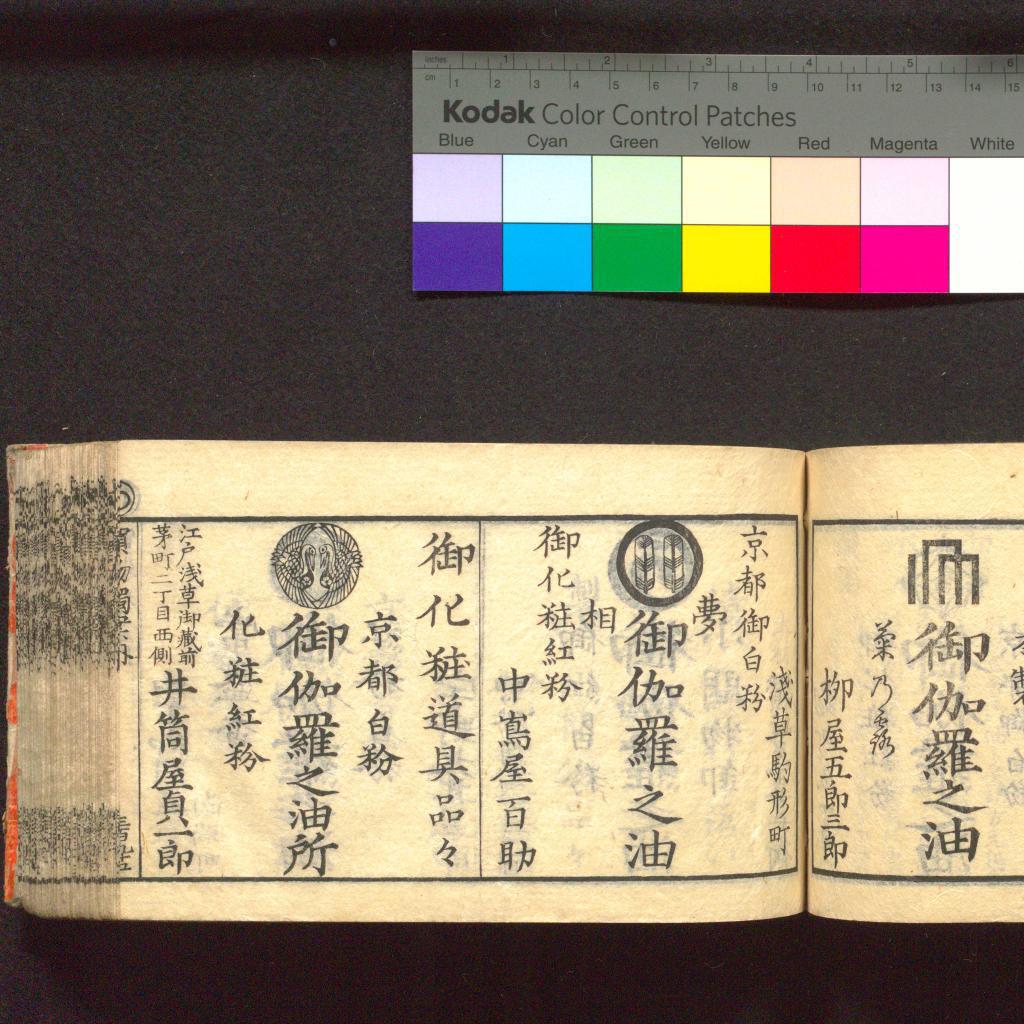 inches 1 2 3 4 5 6
cm 1 2 3 4 5 6 7 8 9 10 11 12 13 14 15
Kodak Color Control Patches
Blue Cyan Green Yellow Red Magenta White
御伽羅之油
菊乃露
柳屋五郎三郎
浅草駒形町
京都御白粉
夢
御伽羅之油
相
御化粧紅粉
中嶌屋百助
御化粧道具品々
京都白粉
御伽羅之油所
化粧紅粉
江戸浅草御蔵前
茅町二丁目西側
井筒屋貞一郎